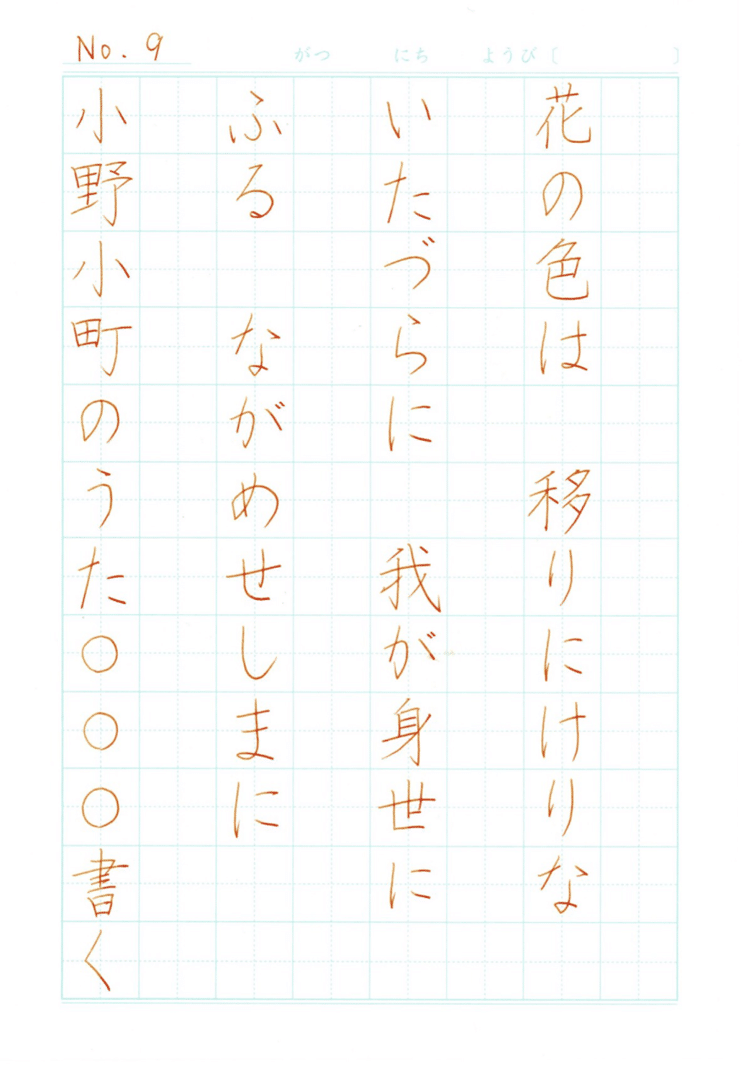 No. 9
がつ にち ようび（ ）
花の色は 移りにけりな
いたづらに 我が身世に
ふる ながめせしまに
小野小町のうた○○○書く